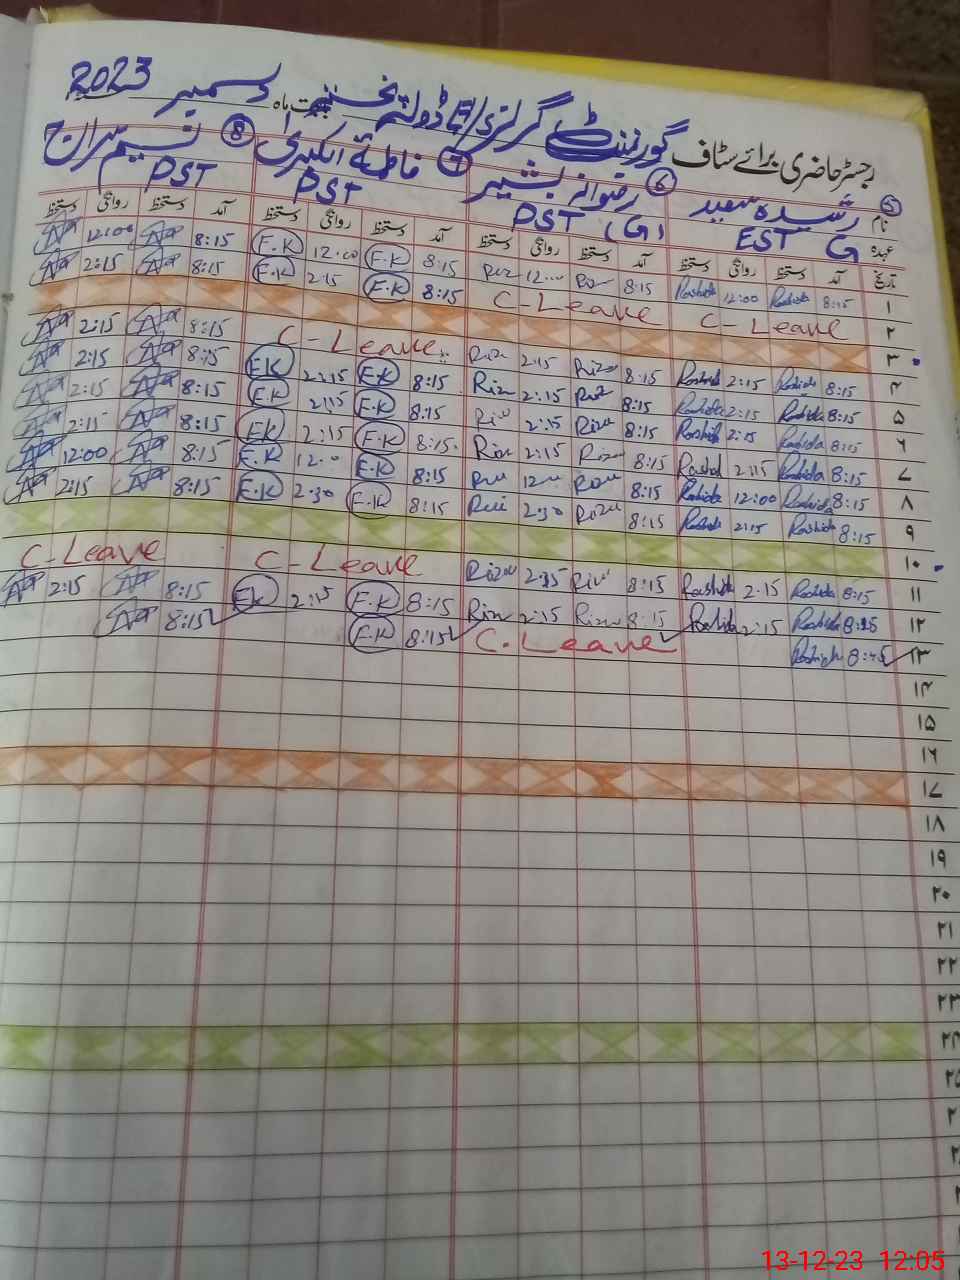 رجسٹر حاضری برائے سٹاف گورنمنٹ گرلز ماہ دسمبر 2023
نام ⑤ رشیدہ سعید ⑥ رضوانہ بشیر ⑦ فاطمۃ الکبریٰ ⑧ نسیم سراج
عہدہ EST G PST (G) PST PST
تاریخ آمد دستخط روانگی دستخط آمد دستخط روانگی دستخط آمد دستخط روانگی دستخط آمد دستخط روانگی دستخط
۱ 8:15 Rashida 12:00 Rashida 8:15 12:00 Riz 8:15 F.K 12:00 F.K 8:15 12:00
۲ C-Leave C-Leave 8:15 F.K 2:15 F.K 8:15 2:15
۳
۴ 8:15 Rashida 2:15 Rashida 8:15 Rizu 2:15 Rizu C-Leave 8:15 2:15
۵ 8:15 Rashida 2:15 Rashida 8:15 Riz 2:15 Rizu 8:15 F.K 2:15 F.K 8:15 2:15
۶ 8:15 Rashida 2:15 Rashida 8:15 Rizu 2:15 Riz 8:15 F.K 2:15 F.K 8:15 2:15
۷ 8:15 Rashida 2:15 Rashida 8:15 Rizu 2:15 Rizu 8:15 F.K 2:15 F.K 8:15 2:15
۸ 8:15 Rashida 12:00 Rashida 8:15 Rizu 12:00 8:15 F.K 12:00 F.K 8:15 12:00
۹ 8:15 Rashida 2:15 Rashida 8:15 Rizu 2:30 8:15 F.K 2:30 F.K 8:15 2:15
۱۰
۱۱ 8:15 Rashida 2:15 Rashida 8:15 Riz 2:35 Rizu C-Leave C-Leave
۱۲ 8:15 Rashida 2:15 Rashida 8:15 Rizu 2:15 Rizu 8:15 F.K 2:15 F.K 8:15 2:15
۱۳ 8:45 Rashida C.Leave 8:15 F.K 8:15
۱۴
۱۵
۱۶
۱۷
۱۸
۱۹
۲۰
۲۱
۲۲
۲۳
۲۴
۲۵
13-12-23 12:05